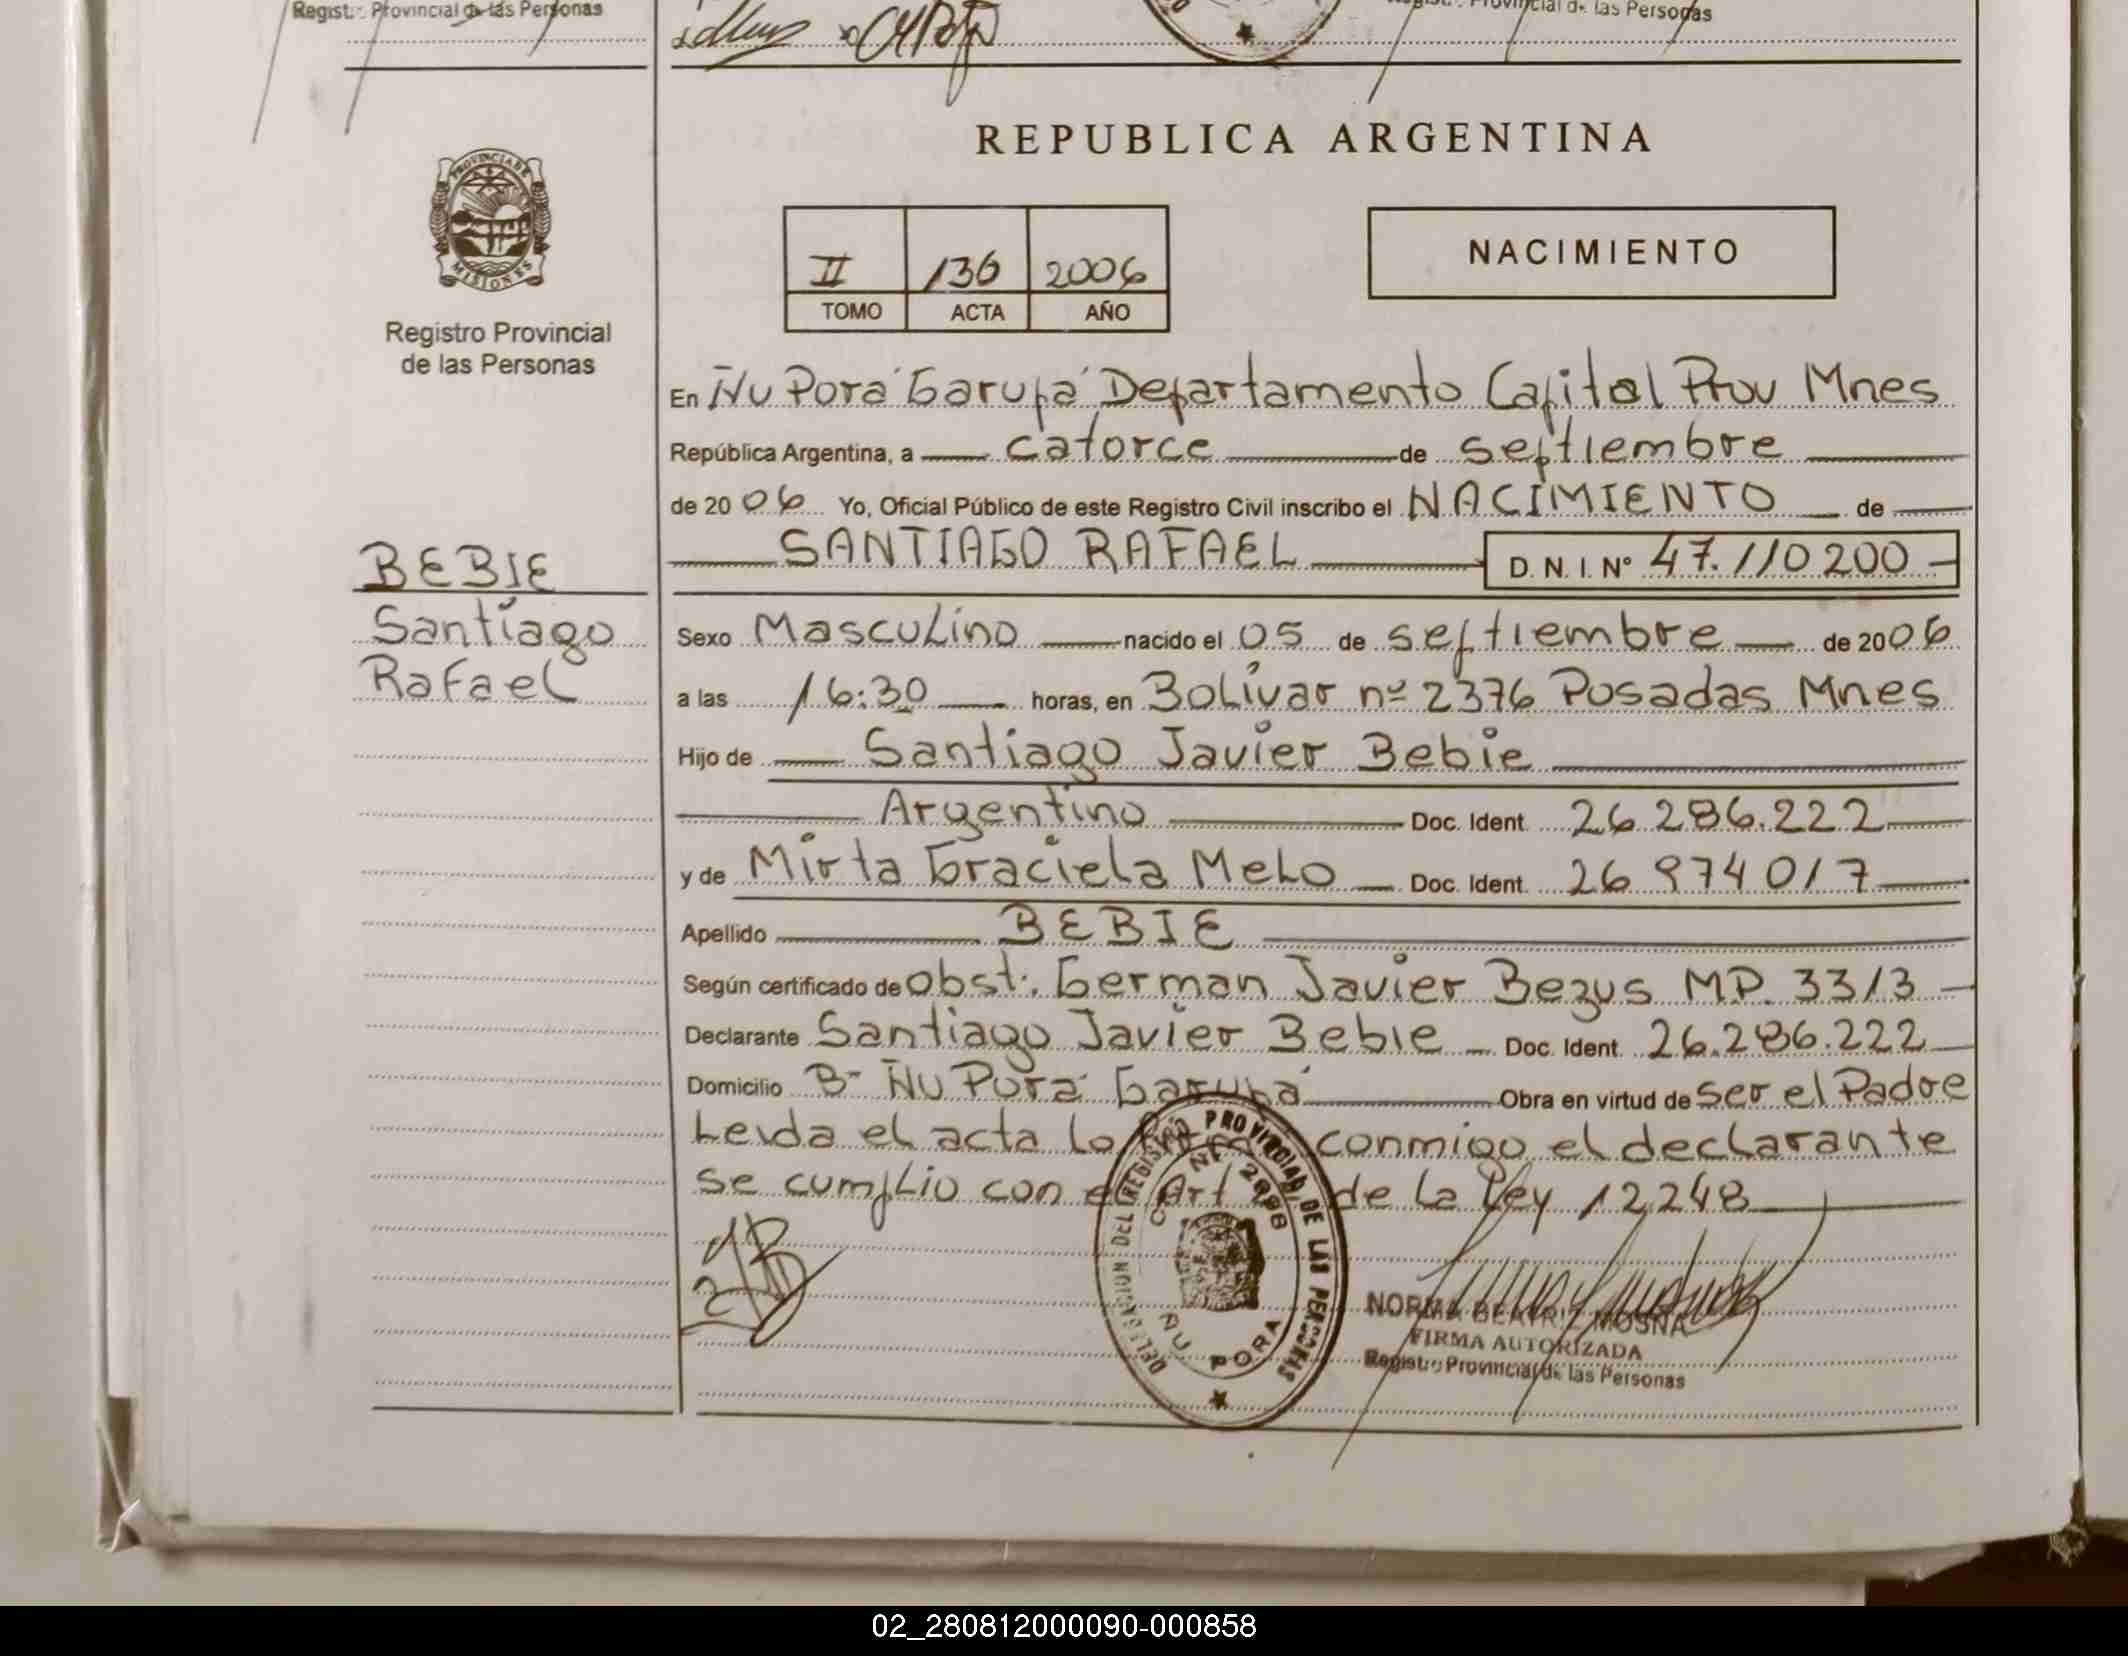 Regist.: Provincial de las Personas
Regist.: Provincial de las Personas
PROVINCIA DE
MISIONES
Registro Provincial
de las Personas
REPUBLICA ARGENTINA
II 136 2006
TOMO ACTA AÑO
NACIMIENTO
En Ñu Porá Garupá Departamento Capital Prov Mnes
República Argentina, a catorce de septiembre
de 2006 Yo, Oficial Público de este Registro Civil inscribo el NACIMIENTO de
SANTIAGO RAFAEL D. N. I. Nº 47.110200
BEBIE
Santiago
Rafael
Sexo Masculino nacido el 05 de septiembre de 2006
a las 16:30 horas, en Bolívar nº 2376 Posadas Mnes
Hijo de Santiago Javier Bebie
Argentino Doc. Ident. 26.286.222
y de Mirta Graciela Melo Doc. Ident. 26 974017
Apellido BEBIE
Según certificado de Obst: German Javier Bezus MP. 3313
Declarante Santiago Javier Bebie Doc. Ident. 26.286.222
Domicilio B- Ñu Porá Garupá Obra en virtud de ser el Padre
Leida el acta lo firma conmigo el declarante
se cumplio con el Art de la Ley 12248
DELEGACION DEL REGISTRO PROVINCIAL DE LAS PERSONAS
ÑU PORA
NORMA BEATRIZ MOSNA
FIRMA AUTORIZADA
Regist.: Provincial de las Personas
02_280812000090-000858